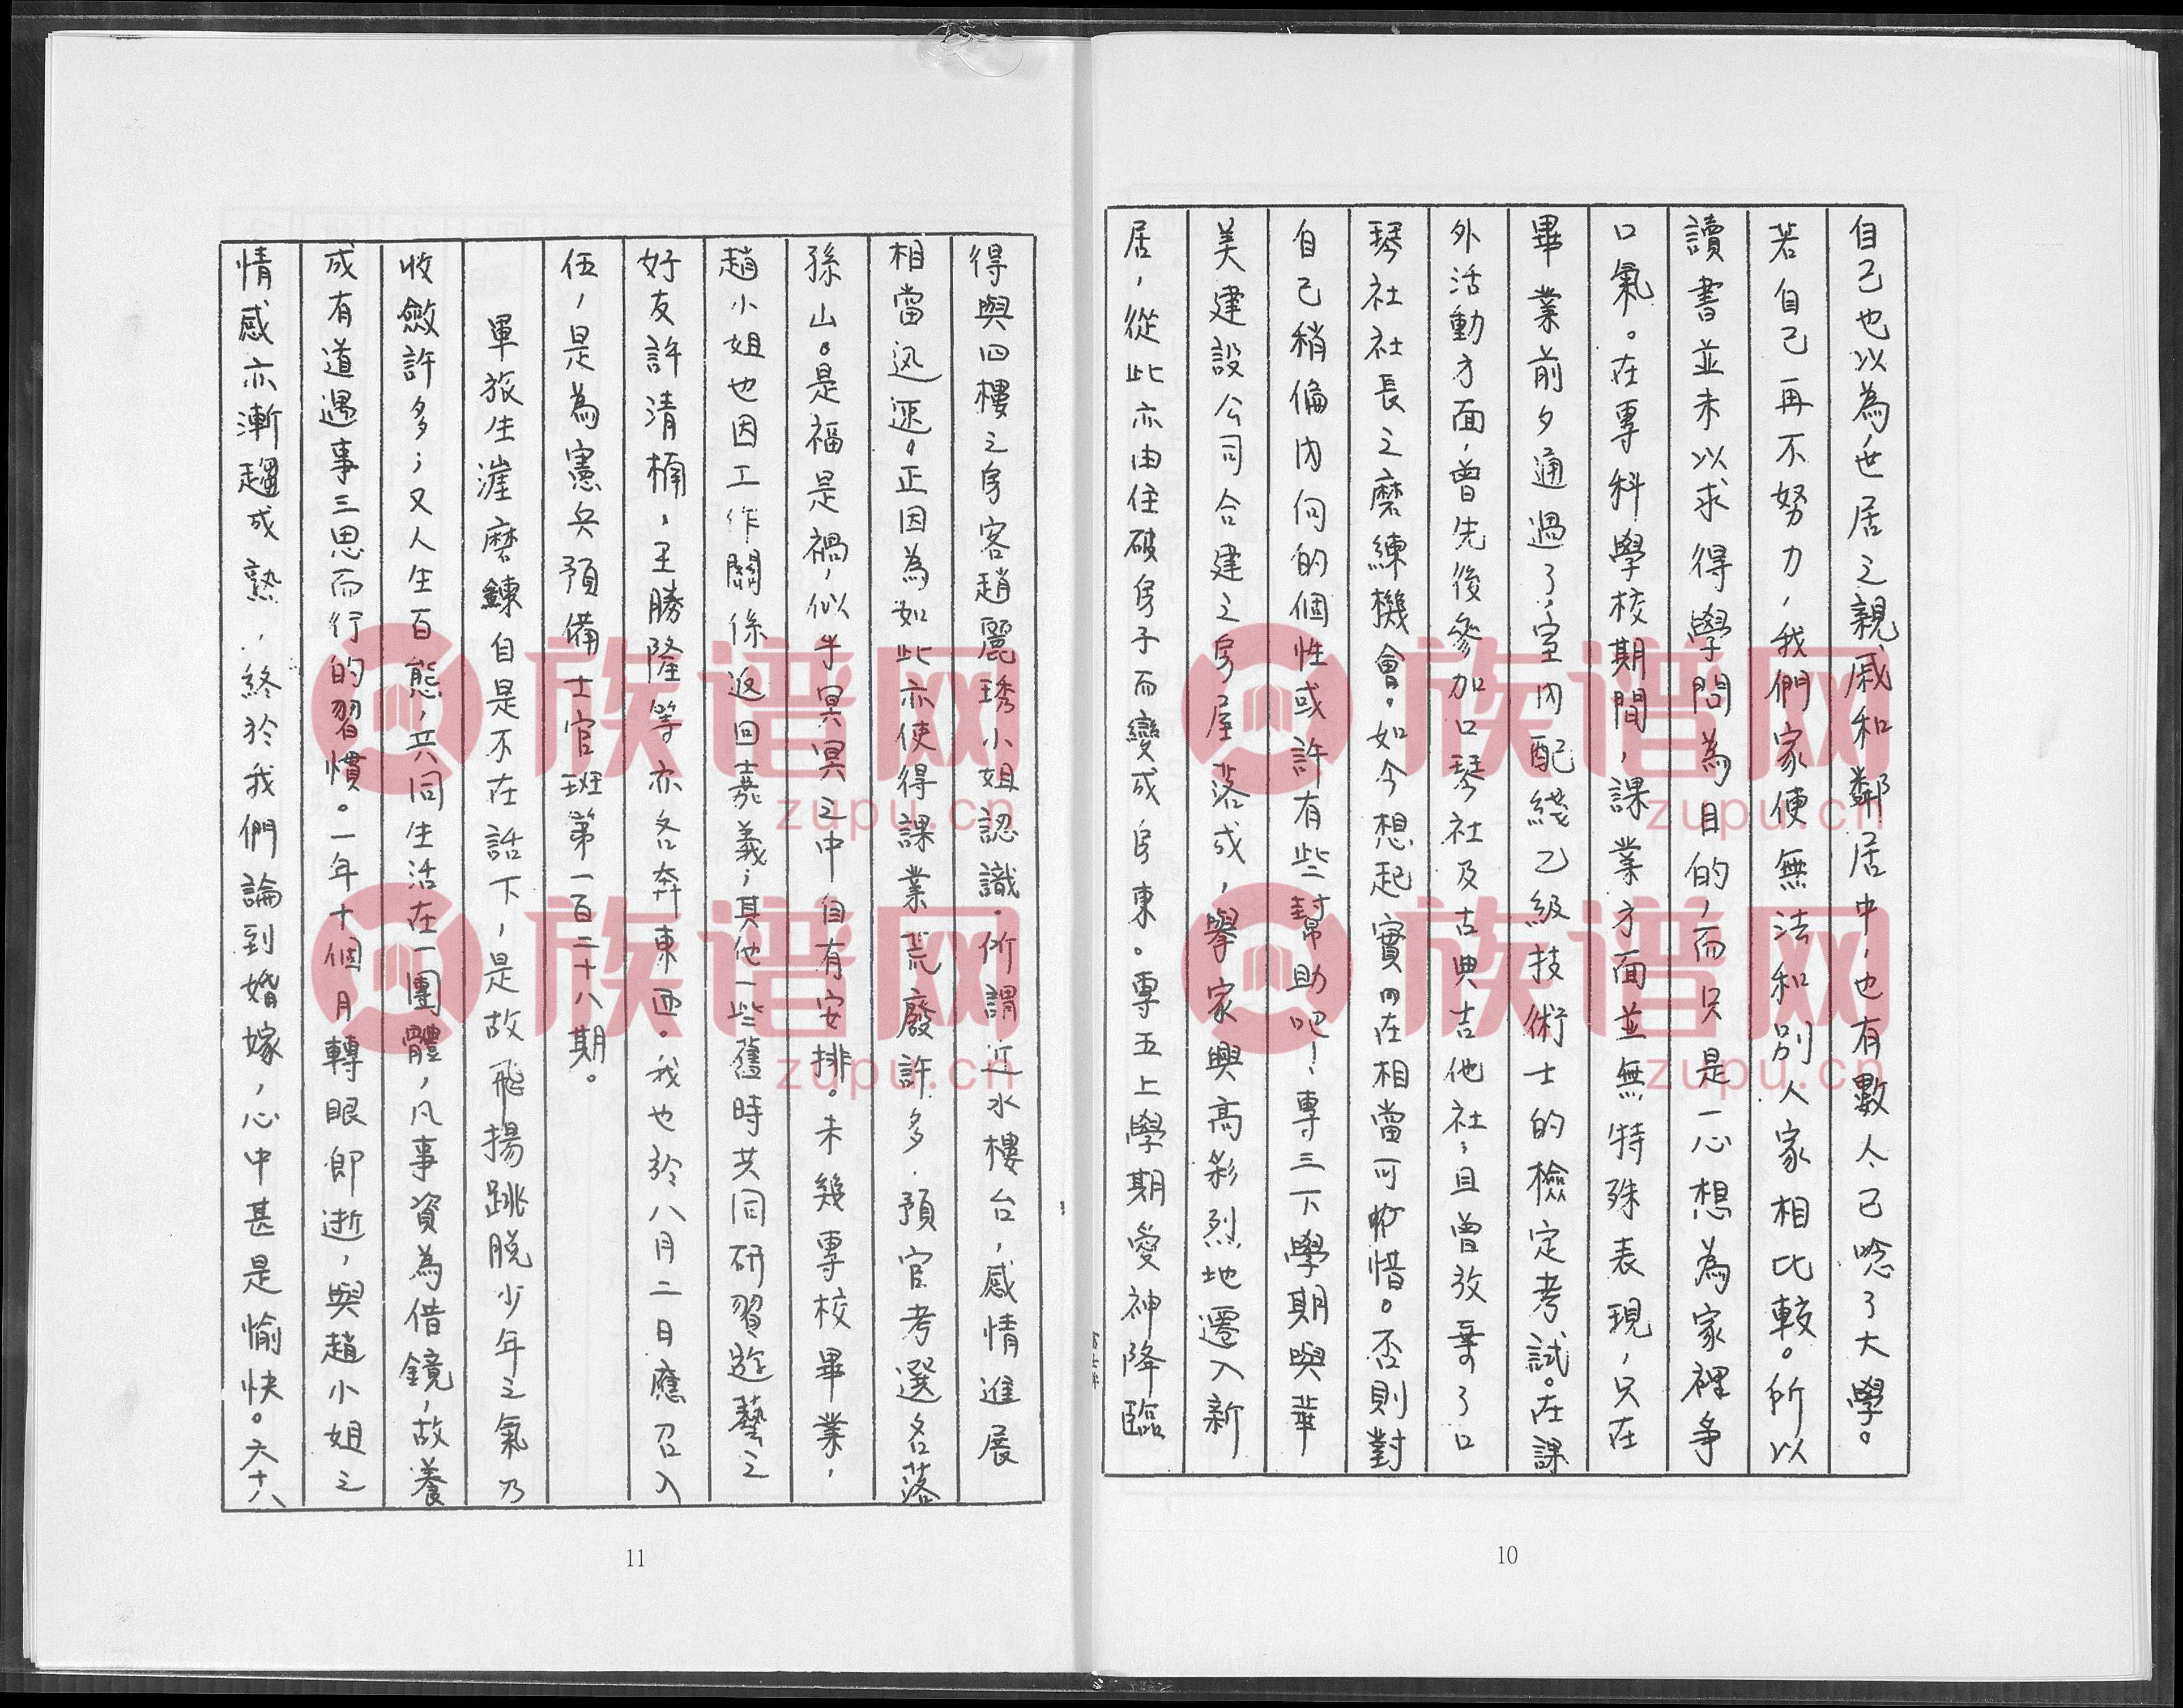 自己也以為,世居之親戚和鄰居中,也有數人已唸了大學。
若自己再不努力,我們家便無法和別人家相比較。所以
讀書並未以求得學問為目的,而只是一心想為家裡爭
口氣。在專科學校期間,課業方面並無特殊表現,只在
畢業前夕通過了,室內配綫乙級技術士的檢定考試。在課
外活動方面,曾先後參加口琴社及古典吉他社,且曾放棄了口
琴社社長之磨練機會。如今想起實在相當可惜。否則對
自己稍偏內向的個性或許有些幫助吧!專三下學期與華
美建設公司合建之房屋落成,舉家興高彩烈地遷入新
居,從此亦由住破房子而變成房東。專五上學期愛神降臨
10
得與四樓之房客趙麗琇小姐認識。所謂近水樓台,感情進展
相當迅速。正因為如此亦使得課業荒廢許多.預官考選名落
孫山。是福是禍,似乎冥冥之中自有安排。未幾專校畢業,
趙小姐也因工作關係返回嘉義;其他一些舊時共同研習遊藝之
好友許清楠,王勝隆等亦各奔東西。我也於八月二日應召入
伍,是為憲兵預備士官班第一百二十八期。
軍旅生涯磨鍊自是不在話下,是故飛揚跳脫少年之氣乃
收斂許多;又人生百態,共同生活在一團體,凡事資為借鏡,故養
成有道遇事三思而行的習慣。一年十個月轉眼即逝,與趙小姐之
情感亦漸趨成熟,終於我們論到婚嫁,心中甚是愉快。六十八
11
族谱网
zupu.cn
族谱网
zupu.cn
族谱网
zupu.cn
族谱网
zupu.cn